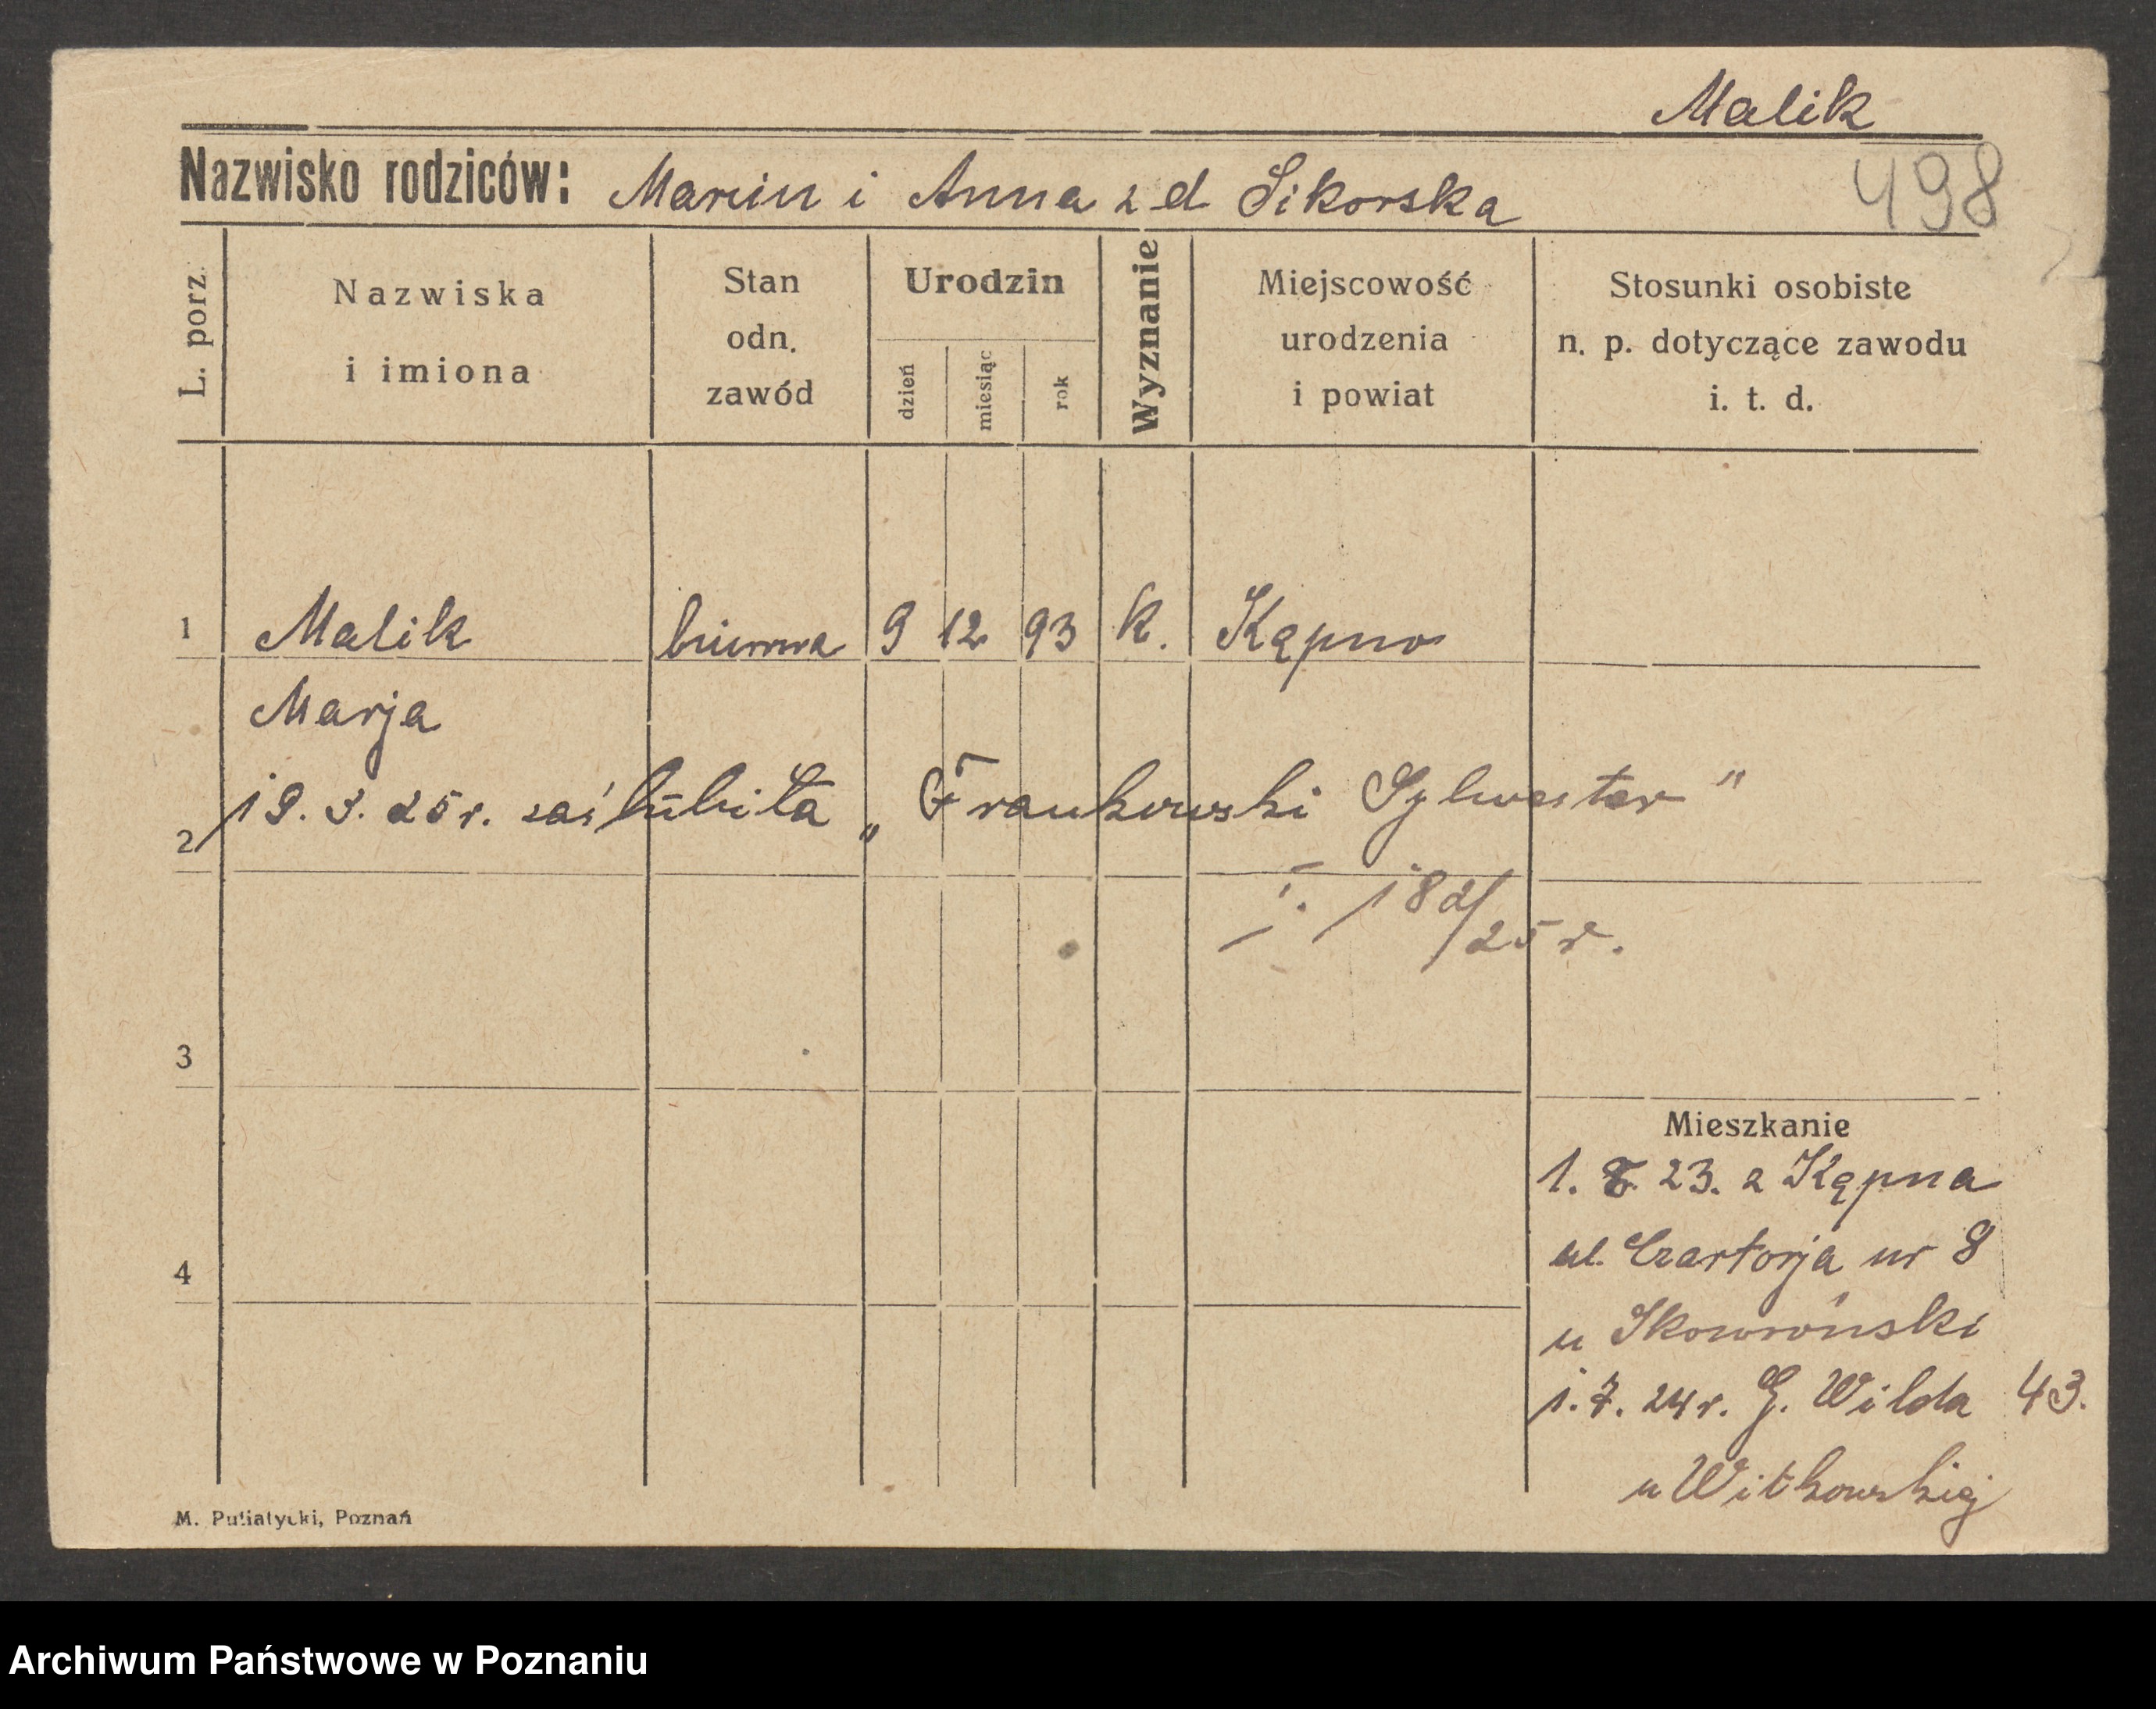 Malik
Nazwisko rodziców: Marcin i Anna z d Sikorska
498
L. porz.
Nazwiska
i imiona
Stan
odn.
zawód
Urodzin
dzień
miesiąc
rok
Wyznanie
Miejscowość
urodzenia
i powiat
Stosunki osobiste
n. p. dotyczące zawodu
i. t. d.
1 Malik biurowa 9 12 93 k. Kępno
Marja
2 19. 3. 25 r. zaślubiła „Frankowski Sylwester"
182/25 r.
3
Mieszkanie
1. 8. 23. z Kępna
4 ul. Czartorja nr 8
u Skowroński
1. 7. 24 r. G. Wilda 43.
u Witkowskiej
M. Putiatycki, Poznań
Archiwum Państwowe w Poznaniu